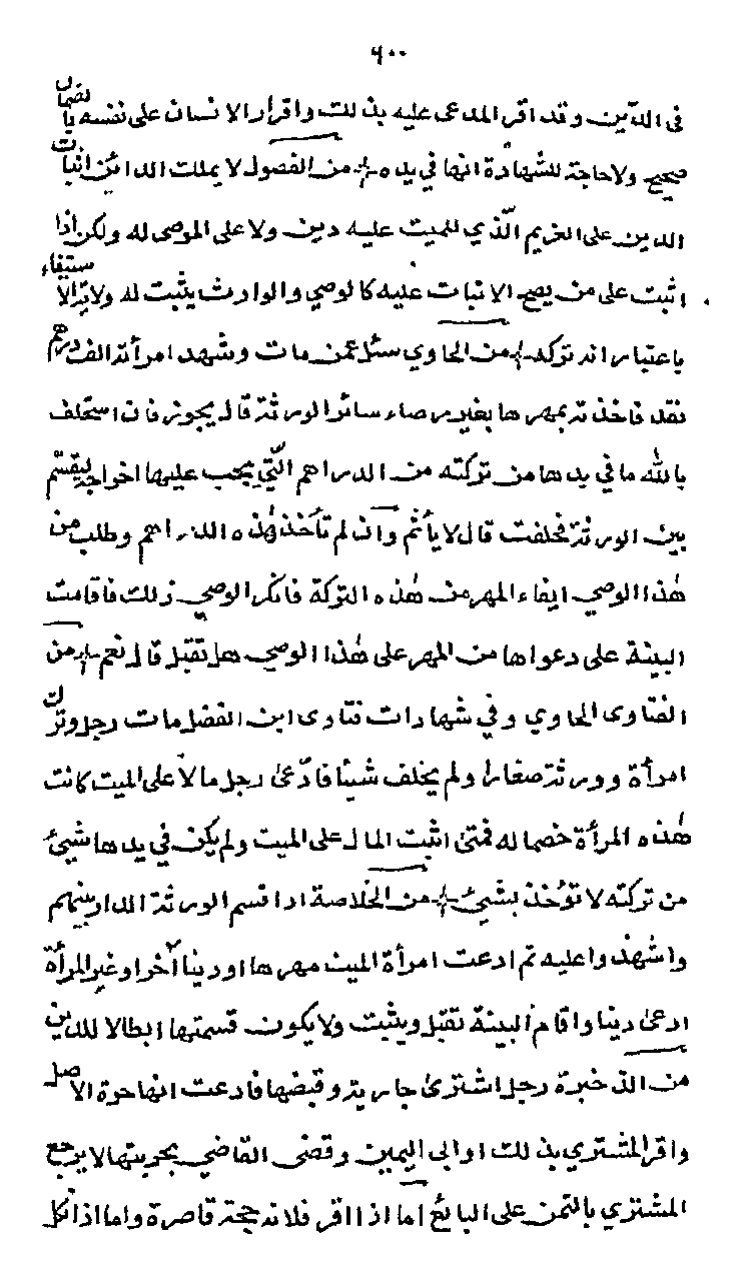 ٦٠٠
في الدين وقد اقر المدعى عليه بذلك واقرار الانسان على نفسه بالضمان
صحيح ولا حاجة للشهادة انها في يده من الفصول لا يملك الدائن اثبات
الدين على الغريم الذي للميت عليه دين ولا على الموصى له ولكن اذا
اثبت على من يصح الاثبات عليه كالوصي والوارث يثبت له ولاية الاستيفاء
باعتبار انه تركة من الحاوي سئل عمن مات وشهد امرأته الف درهم
نقد فاخذته بمهرها بغير رضاء سائر الورثة قال يجوز فان استحلف
بالله ما في يدها من تركته من الدراهم التي يجب عليها اخراجه ليقسم
بين الورثة فحلفت قال لا يأثم وان لم تأخذ هذه الدراهم وطلب من
هذا الوصي ايفاء المهر من هذه التركة فانكر الوصي ذلك فاقامت
البينة على دعواها من المهر على هذا الوصي هل تقبل قال نعم من
الفتاوى الحاوي وفي شهادات فتاوى ابن الفضل مات رجل وترك
امرأة وورثة صغارا ولم يخلف شيئا فادّعىٰ رجل مالا على الميت كانت
هذه المرأة خصما له فمتى اثبت المال على الميت ولم يكن في يدها شيئ
من تركته لا تؤخذ بشيئ من الخلاصة اذا قسم الورثة الدار بينهم
واشهدوا عليه ثم ادعت امرأة الميت مهرها او دينا آخر او غير المرأة
ادعىٰ دينا واقام البينة تقبل ويثبت ولا يكون قسمتها ابطالا للدين
من الذخيرة رجل اشترىٰ جارية وقبضها فادعت انها حرة الاصل
واقر المشتري بذلك او ابى اليمين وقضى القاضي بحريتها لا يرجع
المشتري بالثمن على البائع اما اذا اقر فلانه حجة قاصرة واما اذا نكل